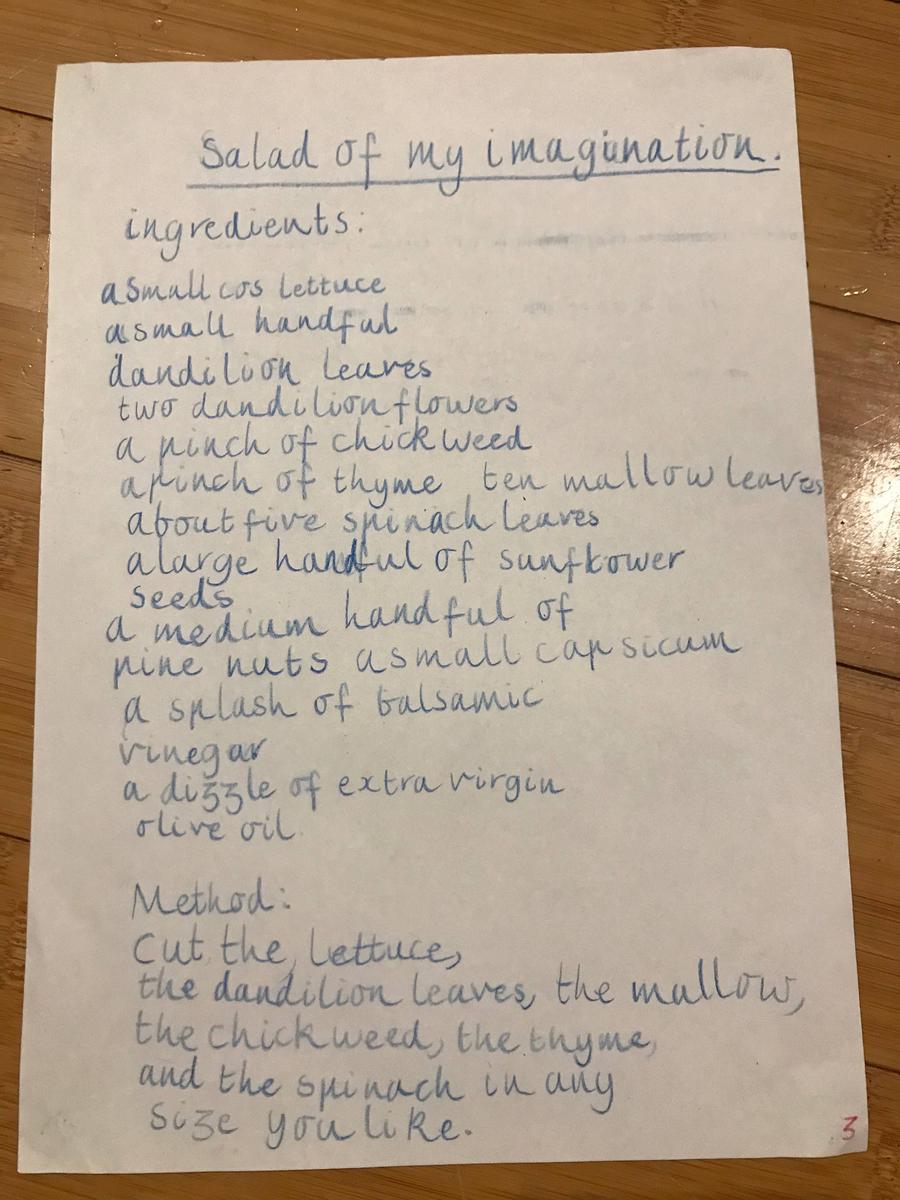 Salad of my imagination.
ingredients:
a small cos lettuce
a small handful
dandilion leaves
two dandilion flowers
a pinch of chickweed
a pinch of thyme ten mallow leaves
about five spinach leaves
a large handful of sunflower
seeds
a medium handful of
pine nuts a small capsicum
a splash of balsamic
vinegar
a dizzle of extra virgin
olive oil
Method:
Cut the lettuce,
the dandilion leaves, the mallow,
the chickweed, the thyme,
and the spinach in any
size you like.
3